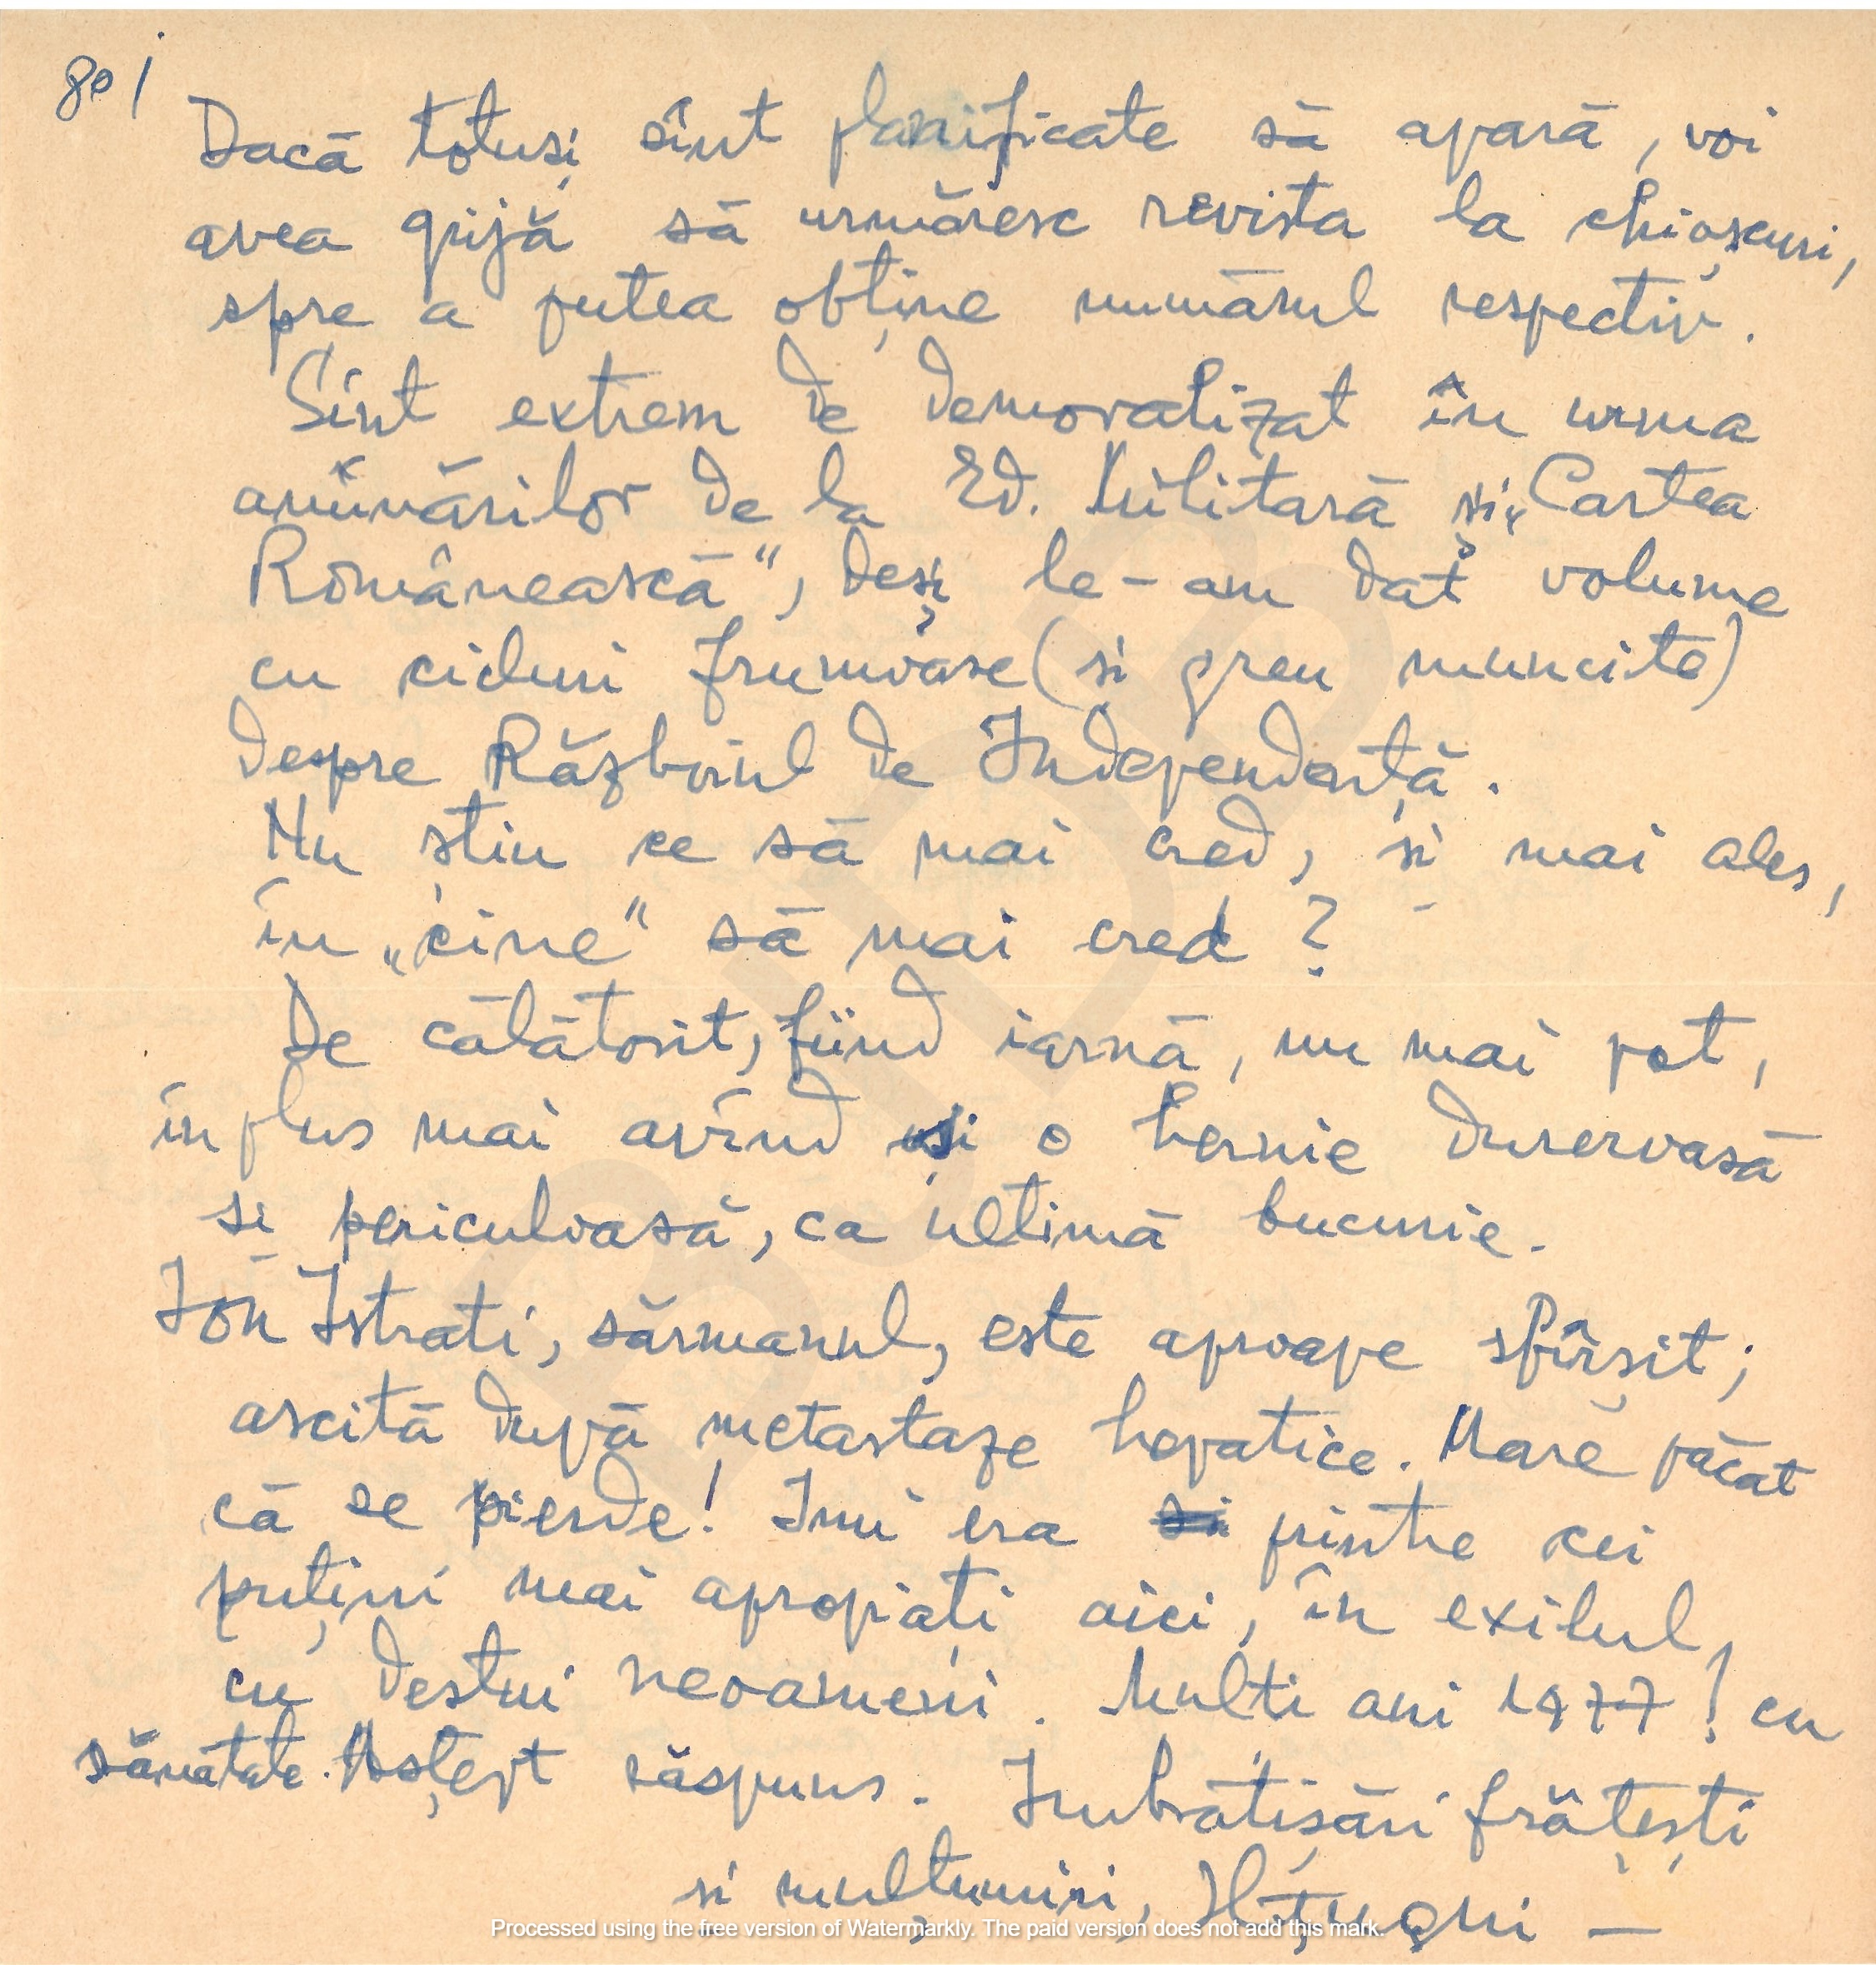 80/
Dacă totuși sînt planificate să apară, voi
avea grijă să urmăresc revista la chioșcuri,
spre a putea obține numărul respectiv.
Sînt extrem de demoralizat în urma
amînărilor de la Ed. Militară și „Cartea
Românească”, deși le-am dat volume
cu cicluri frumoase (si greu muncite)
despre Războiul de Independență.
Nu știu ce să mai cred, și mai ales,
în „cine” să mai cred?
De călătorit, fiind iarnă, nu mai pot,
în plus mai avînd și o hernie dureroasă
și periculoasă, ca ultimă bucurie.
Ion Istrati, sărmanul, este aproape sfîrșit;
ascită după metastaze hepatice. Mare păcat
că se pierde! Imi era printre cei
puțini mai apropiați aici, în exilul,
cu destui neoameni. Multi ani 1977! cu
sănătate. Aștept răspuns. Imbrătișări frățești
si mulțumiri,
Processed using the free version of Watermarkly. The paid version does not add this mark.